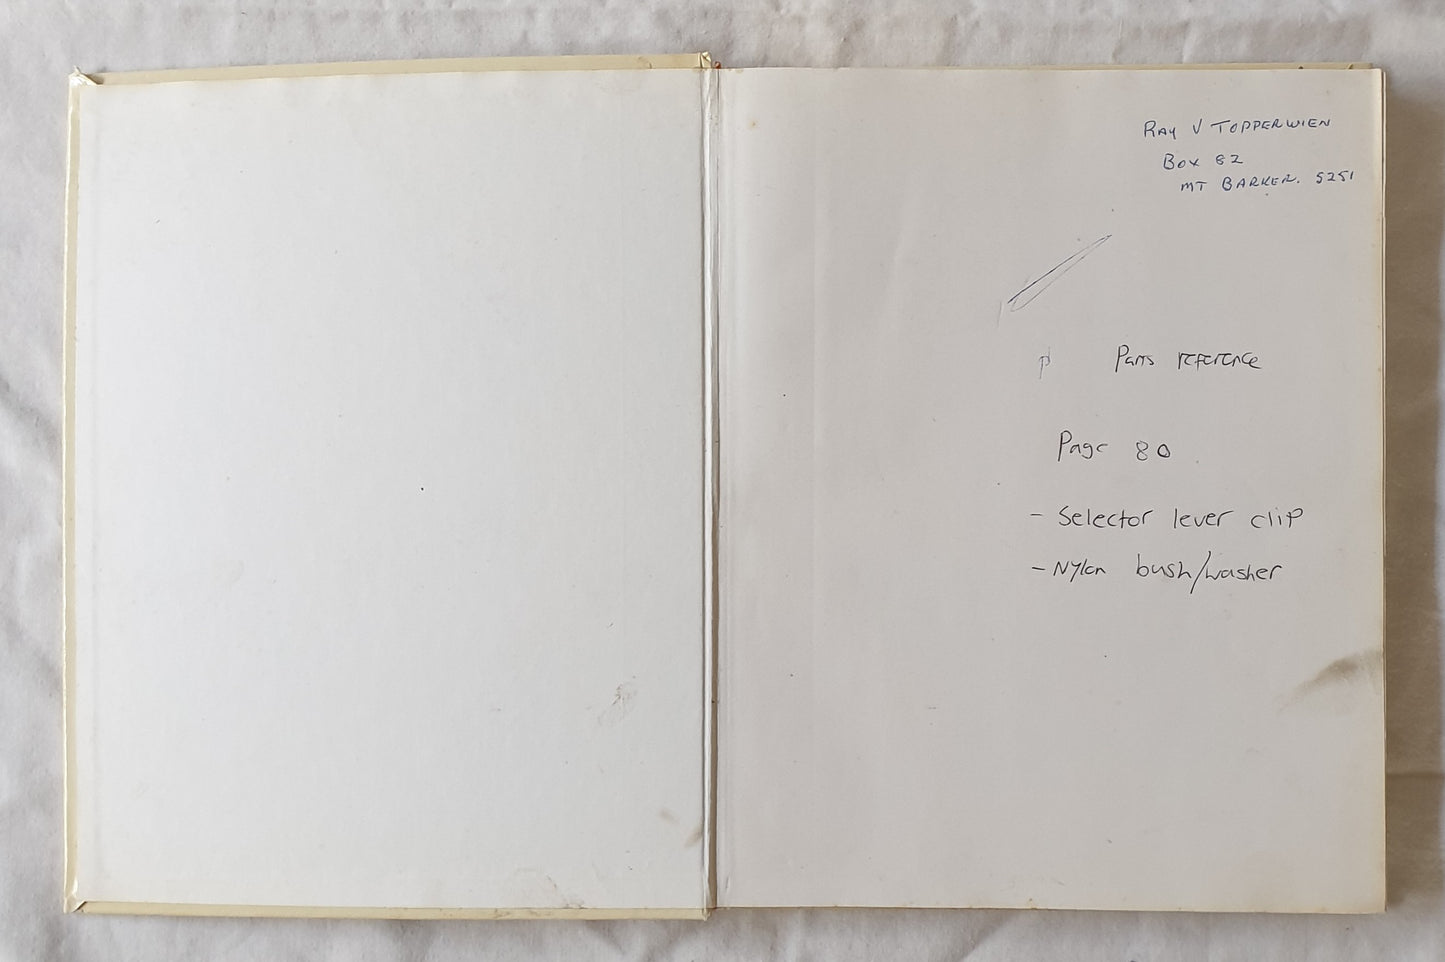 RAY V TOPPERWIEN
BOX 82
MT BARKER. 5251
p Parts reference
Page 80
- Selector lever clip
- Nylon bush/washer